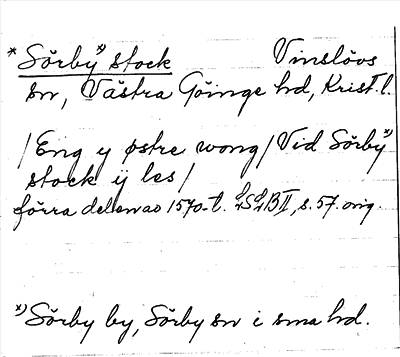 * Sörby *) stock Vinslövs
sn, Västra Göinge hd, Krist. l.
/Eng y østre wong/Vid Sörby *)
stock ij les/
förra delen av 1570-t. LSLB II, s. 57. orig.
*) Sörby by, Sörby sn i sma hd.